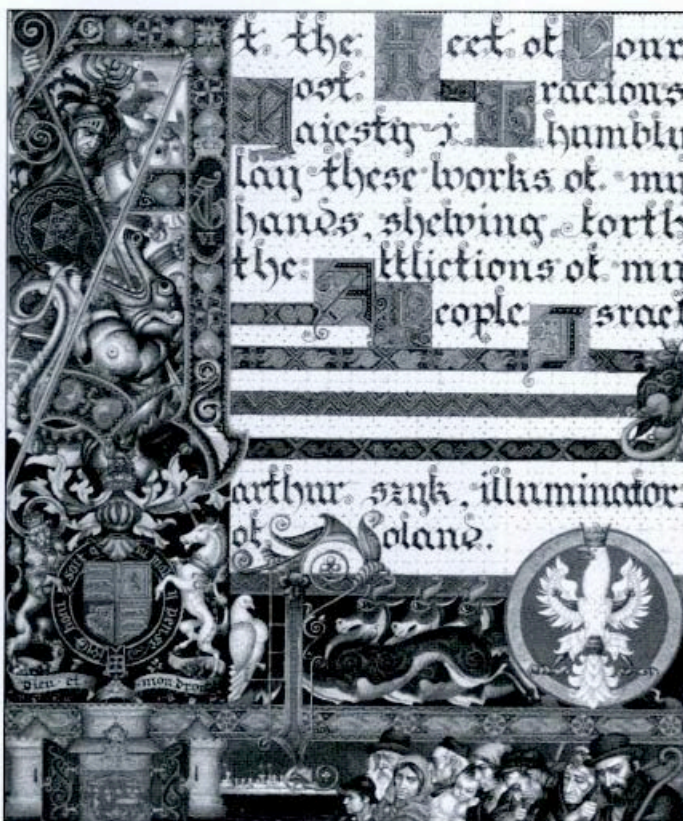 At the Feet of Your
Most Gracious
Majesty i humbly
lay these works of my
hands, shewing forth
the Afflictions of my
People Israel
arthur szyk, illuminator
of Poland.
VI
honi soit qui mal y pense
Dieu et mon droit